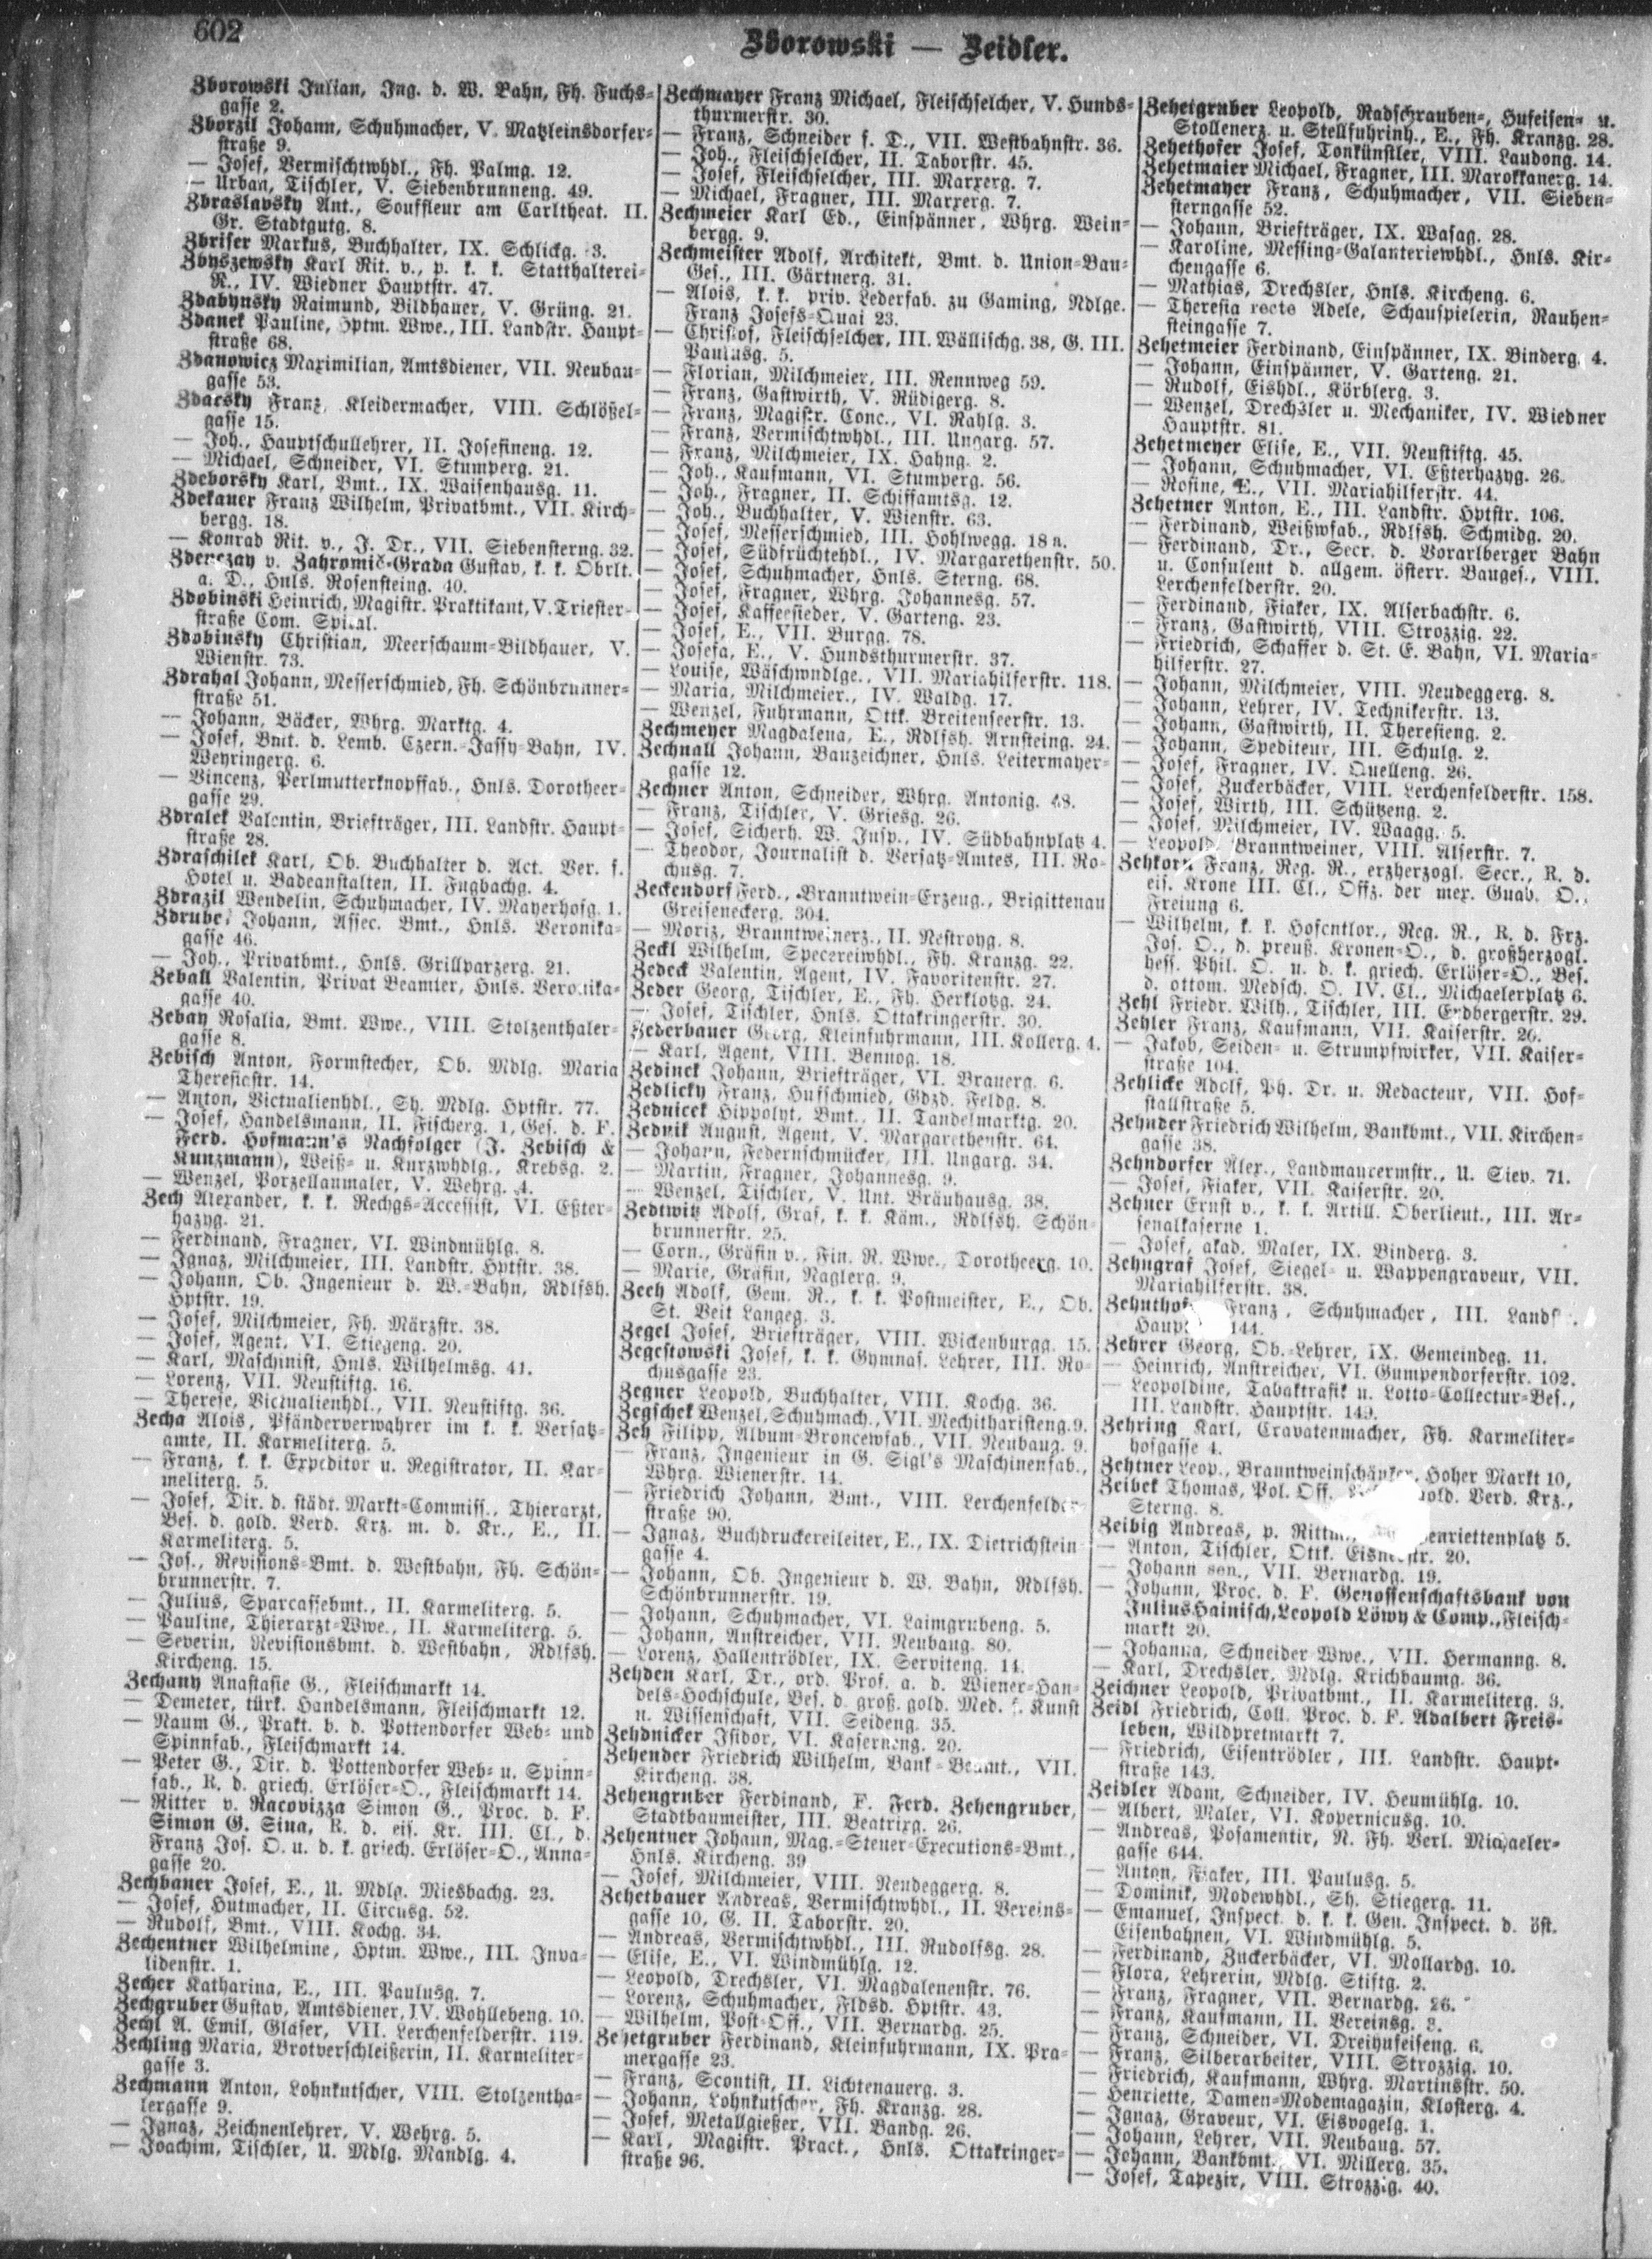 602
Zborowski — Zeidler.
Zborowski Julian, Ing. d. W. Bahn, Fh. Fuchs-
gasse 2.
Zborzil Johann, Schuhmacher, V. Matzleinsdorfer-
straße 9.
— Josef, Vermischtwhdl., Fh. Palmg. 12.
— Urban, Tischler, V. Siebenbrunneng. 49.
Zbraslavsky Ant., Souffleur am Carltheat. II.
Gr. Stadtgutg. 8.
Zbriser Markus, Buchhalter, IX. Schlickg. 3.
Zbyszewsky Karl Rit. v., p. k. k. Statthalterei-
R., IV. Wiedner Hauptstr. 47.
Zdabynsky Raimund, Bildhauer, V. Grüng. 21.
Zdanek Pauline, Hptm. Wwe., III. Landstr. Haupt-
straße 68.
Zdanowicz Maximilian, Amtsdiener, VII. Neubau-
gasse 53.
Zdacsky Franz, Kleidermacher, VIII. Schlößel-
gasse 15.
— Joh., Hauptschullehrer, II. Josefineng. 12.
— Michael, Schneider, VI. Stumperg. 21.
Zdeborsky Karl, Bmt., IX. Waisenhausg. 11.
Zdekauer Franz Wilhelm, Privatbmt., VII. Kirch-
bergg. 18.
— Konrad Rit. v., J. Dr., VII. Siebensterng. 32.
Zderczay v. Zahromic-Grada Gustav, k. k. Obrlt.
a. D., Hnls. Rosensteing. 40.
Zdobinski Heinrich, Magistr. Praktikant, V. Triester-
straße Com. Spital.
Zdobinsky Christian, Meerschaum-Bildhauer, V.
Wienstr. 73.
Zdrahal Johann, Messerschmied, Fh. Schönbrunner-
straße 51.
— Johann, Bäcker, Whrg. Marktg. 4.
— Josef, Bmt. d. Lemb. Czern.-Jassy-Bahn, IV.
Weyringerg. 6.
— Vincenz, Perlmutterknopffab., Hnls. Dorotheer-
gasse 29.
Zdralek Valentin, Briefträger, III. Landstr. Haupt-
straße 28.
Zdraschilek Karl, Ob. Buchhalter d. Act. Ver. f.
Hotel u. Badeanstalten, II. Fugbachg. 4.
Zdrazil Wendelin, Schuhmacher, IV. Mayerhofg. 1.
Zdrube, Johann, Assec. Bmt., Hnls. Veronika-
gasse 46.
— Joh., Privatbmt., Hnls. Grillparzerg. 21.
Zeball Valentin, Privat Beamter, Hnls. Veronika-
gasse 40.
Zebay Rosalia, Bmt. Wwe., VIII. Stolzenthaler-
gasse 8.
Zebisch Anton, Formstecher, Ob. Mdlg. Maria
Theresiastr. 14.
— Anton, Victualienhdl., Sh. Mdlg. Hptstr. 77.
— Josef, Handelsmann, II. Fischerg. 1, Ges. d. F.
Ferd. Hofmann's Nachfolger (J. Zebisch &
Kunzmann), Weiß- u. Kurzwhdlg., Krebsg. 2.
— Wenzel, Porzellanmaler, V. Wehrg. 4.
Zech Alexander, k. k. Rechgs-Accessist, VI. Eßter-
hazyg. 21.
— Ferdinand, Fragner, VI. Windmühlg. 8.
— Ignaz, Milchmeier, III. Landstr. Hptstr. 38.
— Johann, Ob. Ingenieur d. W.-Bahn, Rdlfsh.
Hptstr. 19.
— Josef, Milchmeier, Fh. Märzstr. 38.
— Josef, Agent, VI. Stiegeng. 20.
— Karl, Maschinist, Hnls. Wilhelmsg. 41.
— Lorenz, VII. Neustiftg. 16.
— Therese, Victualienhdl., VII. Neustiftg. 36.
Zecha Alois, Pfänderverwahrer im k. k. Versatz-
amte, II. Karmeliterg. 5.
— Franz, k. k. Expeditor u. Registrator, II. Kar-
meliterg. 5.
— Josef, Dir. d. städt. Markt-Commiss., Thierarzt,
Bes. d. gold. Verd. Krz. m. d. Kr., E., II.
Karmeliterg. 5.
— Jos., Revisions-Bmt. d. Westbahn, Fh. Schön-
brunnerstr. 7.
— Julius, Sparcassebmt., II. Karmeliterg. 5.
— Pauline, Thierarzt-Wwe., II. Karmeliterg. 5.
— Severin, Revisionsbmt. d. Westbahn, Rdlfsh.
Kircheng. 15.
Zechany Anastasie G., Fleischmarkt 14.
— Demeter, türk. Handelsmann, Fleischmarkt 12.
— Naum G., Prakt. b. d. Pottendorfer Web- und
Spinnfab., Fleischmarkt 14.
— Peter G., Dir. d. Pottendorfer Web- u. Spinn-
fab., R. d. griech. Erlöser-O., Fleischmarkt 14.
— Ritter v. Racovizza Simon G., Proc. d. F.
Simon G. Sina, R. d. eis. Kr. III. Cl., d.
Franz Jos. O. u. d. k. griech. Erlöser-O., Anna-
gasse 20.
Zechbauer Josef, E., U. Mdlg. Miesbachg. 23.
— Josef, Hutmacher, II. Circusg. 52.
— Rudolf, Bmt., VIII. Kochg. 34.
Zechentner Wilhelmine, Hptm. Wwe., III. Inva-
lidenstr. 1.
Zecher Katharina, E., III. Paulusg. 7.
Zechgruber Gustav, Amtsdiener, IV. Wohllebeng. 10.
Zechl A. Emil, Glaser, VII. Lerchenfelderstr. 119.
Zechling Maria, Brotverschleißerin, II. Karmeliter-
gasse 3.
Zechmann Anton, Lohnkutscher, VIII. Stolzentha-
lergasse 9.
— Ignaz, Zeichnenlehrer, V. Wehrg. 5.
— Joachim, Tischler, U. Mdlg. Mandlg. 4.
Zechmayer Franz Michael, Fleischselcher, V. Hunds-
thurmerstr. 30.
— Franz, Schneider f. D., VII. Westbahnstr. 36.
— Joh., Fleischselcher, II. Taborstr. 45.
— Josef, Fleischselcher, III. Marxerg. 7.
— Michael, Fragner, III. Marxerg. 7.
Zechmeier Karl Ed., Einspänner, Whrg. Wein-
bergg. 9.
Zechmeister Adolf, Architekt, Bmt. d. Union-Bau-
Ges., III. Gärtnerg. 31.
— Alois, k. k. priv. Lederfab. zu Gaming, Ndlge.
Franz Josefs-Quai 23.
— Christof, Fleischselcher, III. Wällischg. 38, G. III.
Paulusg. 5.
— Florian, Milchmeier, III. Rennweg 59.
— Franz, Gastwirth, V. Rüdigerg. 8.
— Franz, Magistr. Conc., VI. Rahlg. 3.
— Franz, Vermischtwhdl., III. Ungarg. 57.
— Franz, Milchmeier, IX. Hahng. 2.
— Joh., Kaufmann, VI. Stumperg. 56.
— Joh., Fragner, II. Schiffamtsg. 12.
— Joh., Buchhalter, V. Wienstr. 63.
— Josef, Messerschmied, III. Hohlwegg. 18 a.
— Josef, Südfrüchtehdl., IV. Margarethenstr. 50.
— Josef, Schuhmacher, Hnls. Sterng. 68.
— Josef, Fragner, Whrg. Johannesg. 57.
— Josef, Kaffeesieder, V. Garteng. 23.
— Josef, E., VII. Burgg. 78.
— Josefa, E., V. Hundsthurmerstr. 37.
— Louise, Wäschwndlge., VII. Mariahilferstr. 118.
— Maria, Milchmeier., IV. Waldg. 17.
— Wenzel, Fuhrmann, Ottk. Breitenseerstr. 13.
Zechmeyer Magdalena, E., Rdlfsh. Arnsteing. 24.
Zechnall Johann, Bauzeichner, Hnls. Leitermayer-
gasse 12.
Zechner Anton, Schneider, Whrg. Antonig. 48.
— Franz, Tischler, V. Griesg. 26.
— Josef, Sicherh. W. Insp., IV. Südbahnplatz 4.
— Theodor, Journalist d. Versatz-Amtes, III. Ro-
chusg. 7.
Zeckendorf Ferd., Branntwein-Erzeug., Brigittenau
Greiseneckerg. 304.
— Moriz, Branntweinerz., II. Nestroyg. 8.
Zeckl Wilhelm, Specereiwhdl., Fh. Kranzg. 22.
Zedeck Valentin, Agent, IV. Favoritenstr. 27.
Zeder Georg, Tischler, E., Fh. Herklotzg. 24.
— Josef, Tischler, Hnls. Ottakringerstr. 30.
Zederbauer Georg, Kleinfuhrmann, III. Kollerg. 4.
— Karl, Agent, VIII. Bennog. 18.
Zedinek Johann, Briefträger, VI. Brauerg. 6.
Zedlicky Franz, Hufschmied, Gdzd. Feldg. 8.
Zednicek Hippolyt, Bmt., II. Tandelmarktg. 20.
Zednik August, Agent, V. Margarethenstr. 64.
— Johann, Federnschmücker, III. Ungarg. 34.
— Martin, Fragner, Johannesg. 9.
— Wenzel, Tischler, V. Unt. Bräuhausg. 38.
Zedtwitz Adolf, Graf, k. k. Käm., Rdlfsh. Schön-
brunnerstr. 25.
— Corn., Gräfin v., Fin. R. Wwe., Dorotheerg. 10.
— Marie, Gräfin, Naglerg. 9.
Zeeh Adolf, Gem. R., k. k. Postmeister, E., Ob.
St. Veit Langeg. 3.
Zegel Josef, Briefträger, VIII. Wickenburgg. 15.
Zegestowski Josef, k. k. Gymnas. Lehrer, III. Ro-
chusgasse 23.
Zegner Leopold, Buchhalter, VIII. Kochg. 36.
Zegschek Wenzel, Schuhmach., VII. Mechitharisteng. 9.
Zeh Filipp, Album-Broncewfab., VII. Neubaug. 9.
— Franz, Ingenieur in G. Sigl's Maschinenfab.,
Whrg. Wienerstr. 14.
— Friedrich Johann, Bmt., VIII. Lerchenfelder-
straße 90.
— Ignaz, Buchdruckereileiter, E., IX. Dietrichstein-
gasse 4.
— Johann, Ob. Ingenieur d. W. Bahn, Rdlfsh.
Schönbrunnerstr. 19.
— Johann, Schuhmacher, VI. Laimgrubeng. 5.
— Johann, Anstreicher, VII. Neubaug. 80.
— Lorenz, Hallentrödler, IX. Serviteng. 14.
Zehden Karl, Dr., ord. Prof. a. d. Wiener-Han-
dels-Hochschule, Bes. d. groß. gold. Med. f. Kunst
u. Wissenschaft, VII. Seideng. 35.
Zehdnicker Isidor, VI. Kaserneng. 20.
Zehender Friedrich Wilhelm, Bank-Beamt., VII.
Kircheng. 38.
Zehengruber Ferdinand, F. Ferd. Zehengruber,
Stadtbaumeister, III. Beatrixg. 26.
Zehentner Johann, Mag.-Steuer-Executions-Bmt.,
Hnls. Kircheng. 39
— Josef, Milchmeier, VIII. Neudeggerg. 8.
Zehetbauer Andreas, Vermischtwhdl., II. Vereins-
gasse 10, G. II. Taborstr. 20.
— Andreas, Vermischtwhdl., III. Rudolfsg. 28.
— Elise, E., VI. Windmühlg. 12.
— Leopold, Drechsler, VI. Magdalenenstr. 76.
— Lorenz, Schuhmacher, Fldsd. Hptstr. 43.
— Wilhelm, Post-Off., VII. Bernardg. 25.
Zehetgruber Ferdinand, Kleinfuhrmann, IX. Pra-
mergasse 23.
— Franz, Scontist, II. Lichtenauerg. 3.
— Johann, Lohnkutscher, Fh. Kranzg. 28.
— Josef, Metallgießer, VII. Bandg. 26.
— Karl, Magistr. Pract., Hnls. Ottakringer-
straße 96.
Zehetgruber Leopold, Radschrauben-, Hufeisen- u.
Stollenerz. u. Stellfuhrinh., E., Fh. Kranzg. 28.
Zehethofer Josef, Tonkünstler, VIII. Laudong. 14.
Zehetmaier Michael, Fragner, III. Marokkanerg. 14.
Zehetmayer Franz, Schuhmacher, VII. Sieben-
sterngasse 52.
— Johann, Briefträger, IX. Wasag. 28.
— Karoline, Messing-Galanteriewhdl., Hnls. Kir-
chengasse 6.
— Mathias, Drechsler, Hnls. Kircheng. 6.
— Theresia recte Adele, Schauspielerin, Rauhen-
steingasse 7.
Zehetmeier Ferdinand, Einspänner, IX. Binderg. 4.
— Johann, Einspänner, V. Garteng. 21.
— Rudolf, Eishdl., Körblerg. 3.
— Wenzel, Drechsler u. Mechaniker, IV. Wiedner
Hauptstr. 81.
Zehetmeyer Elise, E., VII. Neustiftg. 45.
— Johann, Schuhmacher, VI. Eßterhazyg. 26.
— Rosine, E., VII. Mariahilferstr. 44.
Zehetner Anton, E., III. Landstr. Hptstr. 106.
— Ferdinand, Weißwfab., Rdlfsh. Schmidg. 20.
— Ferdinand, Dr., Secr. d. Vorarlberger Bahn
u. Consulent d. allgem. österr. Bauges., VIII.
Lerchenfelderstr. 20.
— Ferdinand, Fiaker, IX. Alserbachstr. 6.
— Franz, Gastwirth, VIII. Strozzig. 22.
— Friedrich, Schaffer d. St. E. Bahn, VI. Maria-
hilferstr. 27.
— Johann, Milchmeier, VIII. Neudeggerg. 8.
— Johann, Lehrer, IV. Technikerstr. 13.
— Johann, Gastwirth, II. Theresieng. 2.
— Johann, Spediteur, III. Schulg. 2.
— Josef, Fragner, IV. Quelleng. 26.
— Josef, Zuckerbäcker, VIII. Lerchenfelderstr. 158.
— Josef, Wirth, III. Schützeng. 2.
— Josef, Milchmeier, IV. Waagg. 5.
— Leopold, Branntweiner, VIII. Alserstr. 7.
Zehkorn Franz, Reg. R., erzherzogl. Secr., R. d.
eis. Krone III. Cl., Offz. der mex. Guad. O.,
Freiung 6.
— Wilhelm, k. k. Hofcntlor., Reg. R., R. d. Frz.
Jos. O., d. preuß. Kronen-O., d. großherzogl.
hess. Phil. O. u. d. k. griech. Erlöser-O., Bes.
d. ottom. Medsch. O. IV. Cl., Michaelerplatz 6.
Zehl Friedr. Wilh., Tischler, III. Erdbergerstr. 29.
Zehler Franz, Kaufmann, VII. Kaiserstr. 26.
— Jakob, Seiden- u. Strumpfwirker, VII. Kaiser-
straße 104.
Zehlicke Adolf, Ph. Dr. u. Redacteur, VII. Hof-
stallstraße 5.
Zehnder Friedrich Wilhelm, Bankbmt., VII. Kirchen-
gasse 38.
Zehndorfer Alex., Landmaurermstr., U. Siev. 71.
— Josef, Fiaker, VII. Kaiserstr. 20.
Zehner Ernst v., k. k. Artill. Oberlieut., III. Ar-
senalkaserne 1.
— Josef, akad. Maler, IX. Binderg. 3.
Zehngraf Josef, Siegel- u. Wappengraveur, VII.
Mariahilferstr. 38.
Zehnthof Franz, Schuhmacher, III. Lands
Haupt 144.
Zehrer Georg, Ob.-Lehrer, IX. Gemeindeg. 11.
— Heinrich, Anstreicher, VI. Gumpendorferstr. 102.
— Leopoldine, Tabaktrafik u. Lotto-Collectur-Bes.,
III. Landstr. Hauptstr. 149.
Zehring Karl, Cravatenmacher, Fh. Karmeliter-
hofgasse 4.
Zehtner Leop., Branntweinschänker, Hoher Markt 10,
Zeibek Thomas, Pol. Off. gold. Verd. Krz.,
Sterng. 8.
Zeibig Andreas, p. Rittm. Henriettenplatz 5.
— Anton, Tischler, Ottk. Eisnerstr. 20.
— Johann sen., VII. Bernardg. 19.
— Johann, Proc. d. F. Genossenschaftsbank von
Julius Hainisch, Leopold Löwy & Comp., Fleisch-
markt 20.
— Johanna, Schneider Wwe., VII. Hermanng. 8.
— Karl, Drechsler, Mdlg. Krichbaumg. 36.
Zeichner Leopold, Privatbmt., II. Karmeliterg. 3.
Zeidl Friedrich, Coll. Proc. d. F. Adalbert Freis-
leben, Wildpretmarkt 7.
— Friedrich, Eisentrödler, III. Landstr. Haupt-
straße 143.
Zeidler Adam, Schneider, IV. Heumühlg. 10.
— Albert, Maler, VI. Kopernicusg. 10.
— Andreas, Posamentir, N. Fh. Verl. Michaeler-
gasse 644.
— Anton, Fiaker, III. Paulusg. 5.
— Dominik, Modewhdl., Sh. Stiegerg. 11.
— Emanuel, Inspect. d. k. k. Gen. Inspect. d. öst.
Eisenbahnen, VI. Windmühlg. 5.
— Ferdinand, Zuckerbäcker, VI. Mollardg. 10.
— Flora, Lehrerin, Mdlg. Stiftg. 2.
— Franz, Fragner, VII. Bernardg. 26.
— Franz, Kaufmann, II. Vereinsg. 3.
— Franz, Schneider, VI. Dreihufeiseng. 6.
— Franz, Silberarbeiter, VIII. Strozzig. 10.
— Friedrich, Kaufmann, Whrg. Martinsstr. 50.
— Henriette, Damen-Modemagazin, Klosterg. 4.
— Ignaz, Graveur, VI. Eisvogelg. 1.
— Johann, Lehrer, VII. Neubaug. 57.
— Johann, Bankbmt., VI. Millerg. 35.
— Josef, Tapezir, VIII. Strozzig. 40.